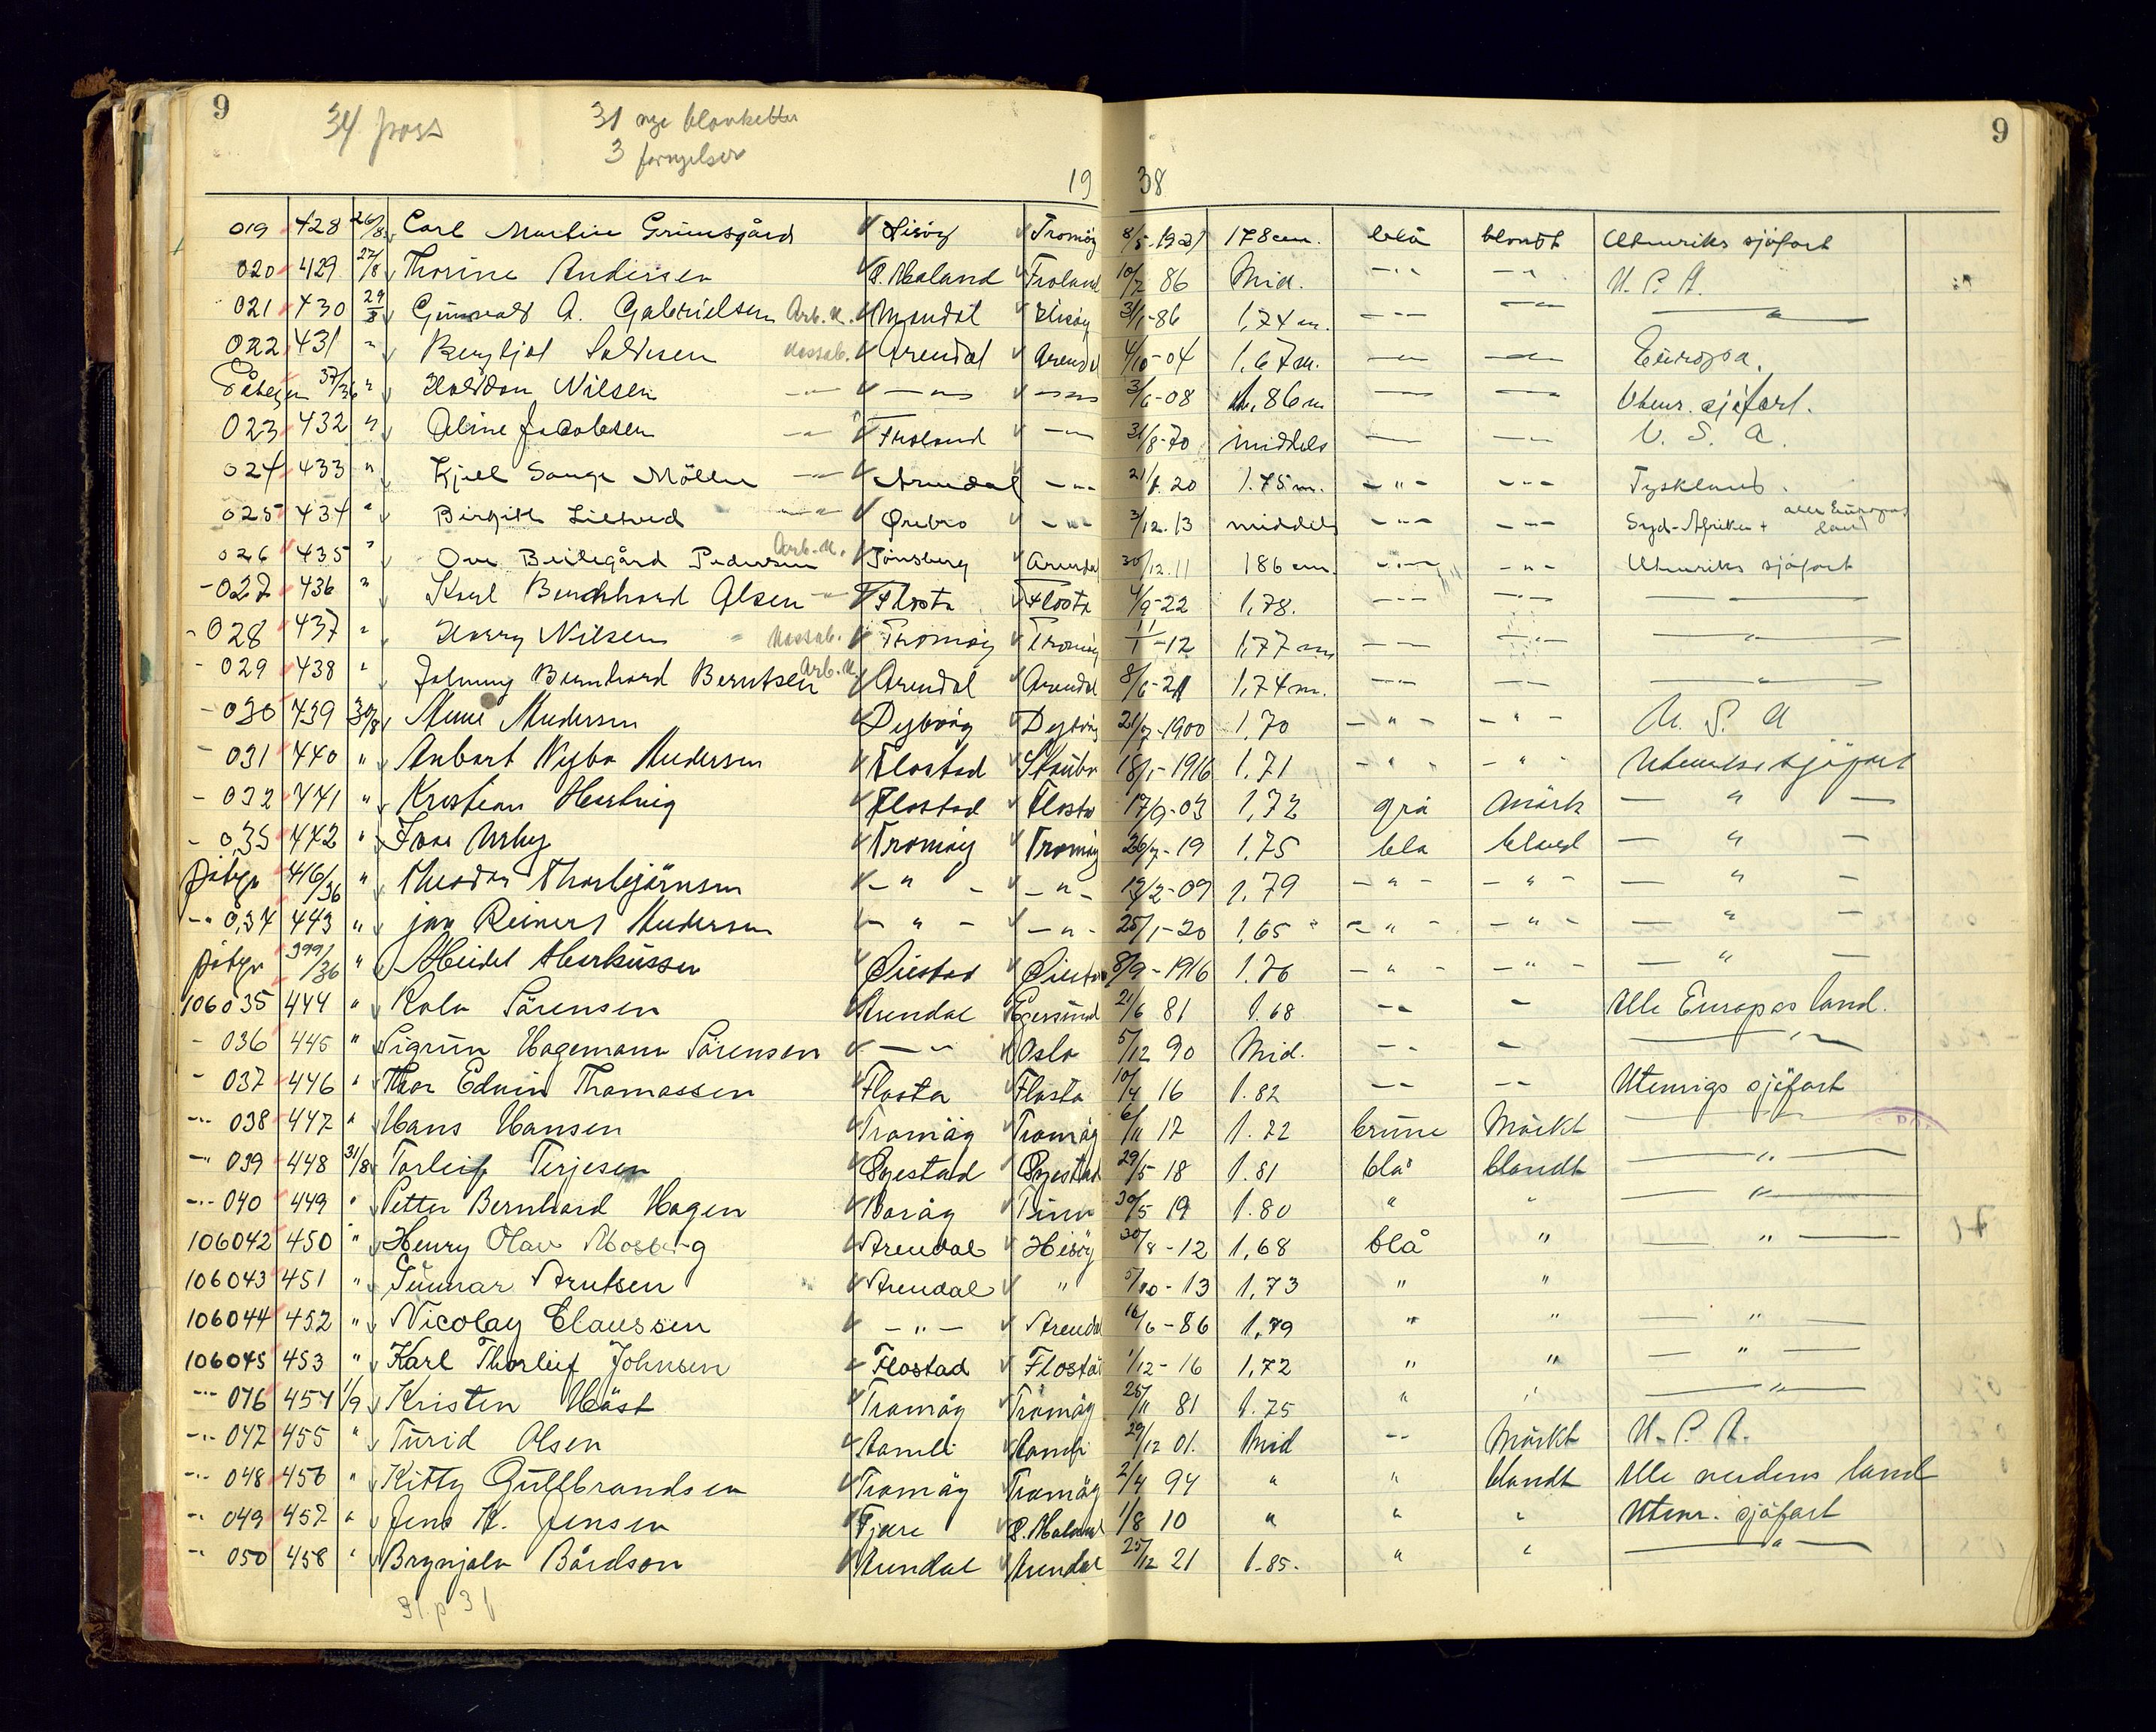 9 34 pass 31 nye blanketter 9
3 fornyelser
19 38
019 428 26/8 Carl Martin Grimsgård Hisöy Tromöy 8/5-1921 178 cm. blå blondt Utenriks sjöfart
020 429 27/8 Thorine Andersen Ö. Moland Froland 10/7 86 Mid. -"- -"- U.S.A.
021 430 29/8 Gunvald A. Gabrielsen Arb.u. Arendal Hisöy 31/1-86 1,74 m. -"- -"- -"-
022 431 " Bergljot Arendal Arendal 4/10-04 1,67 m. -"- -"- Europa.
Påtegn 37/36 " Haldon Nilsen -"- -"- -"- 3/6-08 1,86 m -"- -"- Utenr. sjöfart.
023 432 " Aline Jacobsen -"- Froland -"- 31/8-70 middels -"- -"- U.S.A.
024 433 " Kjell Sange Möller -"- Arendal -"- 21/8 20 1.75 m. -"- -"- Tyskland.
025 434 " Birgith Liltved -"- Örebro -"- 3/12.13 middels -"- -"- Syd-Afrika + alle Europas land
026 435 " Ove Beilegård Pedersen Arb.u. Tönsberg Arendal 30/12.11 186 cm. -"- -"- Utenriks sjöfart
-027 436 " Karl Bernhard Olsen -"- Flosta Flosta 4/9-22 1,78. -"- -"- -"-
-028 437 " Harry Nilsen Tromöy Tromöy 11/1-12 1,77 m -"- -"- -"-
-029 438 " Johnny Bernhard Berntsen Arb.u. Arendal Arendal 8/6-21 1,74 m. -"- -"- -"-
-030 439 30/8 Andersen Dypvåg Dypvåg 21/7-1900 1,70 -"- -"- U.S.A
-031 440 " Anbert Nybo Andersen Flostad 18/1-1916 1,71 -"- -"- Utenriks sjöfart
-032 441 " Kristian Hartvig Flostad Flosta 17/9-03 1,72 grå mörk -"-
-035 442 " Tromöy Tromöy 26/7-19 1,75 blå blond -"-
påtegn 416/36 " Theodor Thorbjörnsen -"- -"- 12/2-09 1,79 -"- -"- -"-
-"034 443 " Jan Reinert Andersen -"- -"- 25/1-20 1,65 -"- -"- -"-
påtegn 399/36 " Markussen Öiestad Öiestad 8/9-1916 1.76 -"- -"- -"-
106035 444 " Rolv Sörensen Arendal Egersund 21/6 81 1.68 -"- - Alle Europas land.
-036 445 " Sigrun Hagemann Sörensen -"- Oslo 5/12 90 Mid. -"- - -"-
-037 446 " Thor Edvin Thomassen Flosta Flosta 10/4 16 1.82 -"- -"- Utenrigs sjöfart
-"-038 447 " Hans Hansen Tromöy Tromöy 6/11 17 1.72 brune Mörkt -"-
-"-039 448 31/8 Torleif Terjesen Öyestad Öyestad 29/5 18 1.81 blå blondt -"-
-"-040 449 " Petter Bernhard Hagen Baröy Tinn 30/5 19 1.80 " " -"-
106042 450 " Henry Olav Mosberg Arendal Hisöy 30/8-12 1,68 blå " -"-
106043 451 " Gunnar Arntsen Arendal " 5/10-13 1,73 " "
106044 452 " Nicolay Claussen -"- Arendal 16/6-86 1,79 " " -"-
106045 453 " Karl Thorleif Johnsen Flostad Flostad 1/12-16 1,72 " " -"-
-"-046 454 1/9 Kristen Häst Tromöy Tromöy 25/11 81 1.75 " " -"-
-"-047 455 " Turid Olsen Aamli Aamli 29/12 01. Mid -"- Mörkt U.S.A.
-"-048 456 " Kitty Gullbrandsen Tromöy Tromöy 2/4 94 " " blondt Alle verdens land
-"-049 457 " Jens K. Jensen Fjære Ö. Moland 1/8 10 " " " Utenr. sjöfart
-"-050 458 " Brynjolv Bårdson Arendal Arendal 25/12 21 1.85. " " -"-